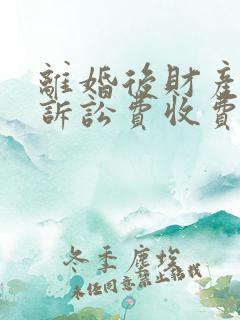 離婚後財產
訴訟費收費
冬季塵埃
未经同意禁止转载